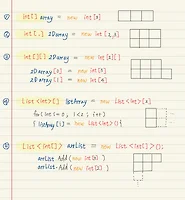 ① int[] array = new int[3]
② int[,] 2Darray = new int[2,3]
③ int[][] 2Darray = new int[2][]
2Darray[0] = new int[3]
2Darray[1] = new int[4]
④ List<int>[] listArray = new List<int>[2]
for(int i=0; i<2; i++)
{ listArray[i] = new List<int>() {
⑤ List<int[]> arrList = new List<int[]>();
arrList.Add(new int[2])
arrList.Add(new int[2])